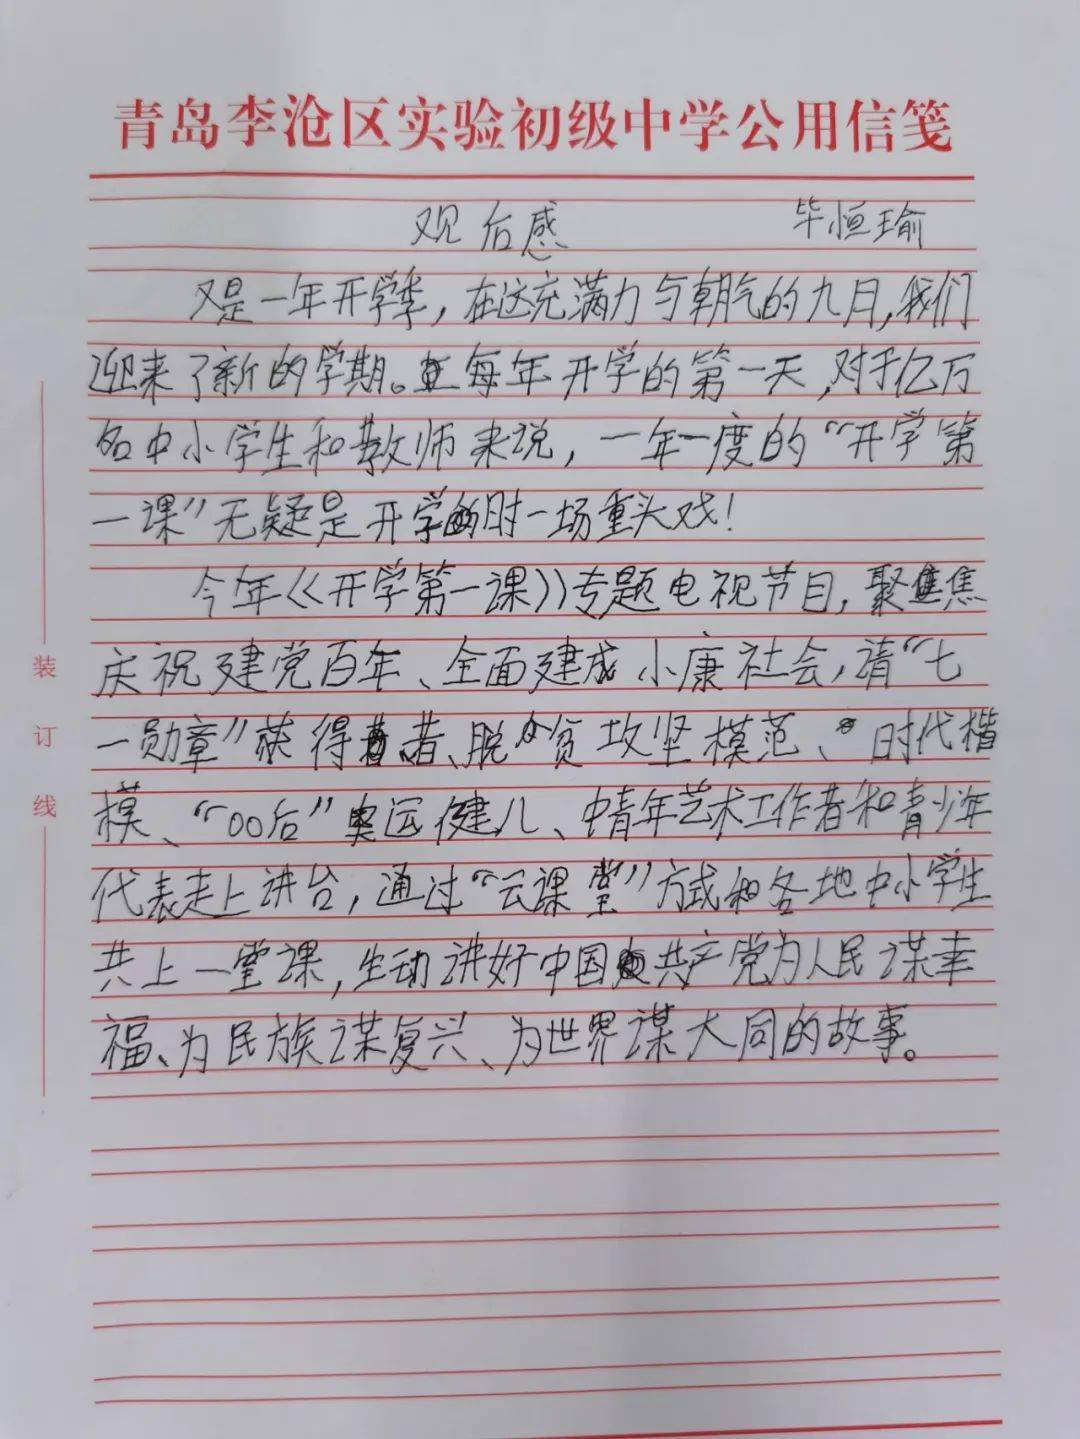 青岛李沧区实验初级中学公用信笺
观后感 毕恒瑜
又是一年开学季，在这充满力与朝气的九月，我们
迎来了新的学期。每年开学的第一天，对于亿万
名中小学生和教师来说，一年一度的“开学第
一课”无疑是开学时一场重头戏！
今年《开学第一课》专题电视节目，聚焦
庆祝建党百年、全面建成小康社会，请“七
一勋章”获得者、脱贫攻坚模范、时代楷
模、“00后”奥运健儿、中青年艺术工作者和青少年
代表走上讲台，通过“云课堂”方式和各地中小学生
共上一堂课，生动讲好中国共产党为人民谋幸
福、为民族谋复兴、为世界谋大同的故事。
装
订
线